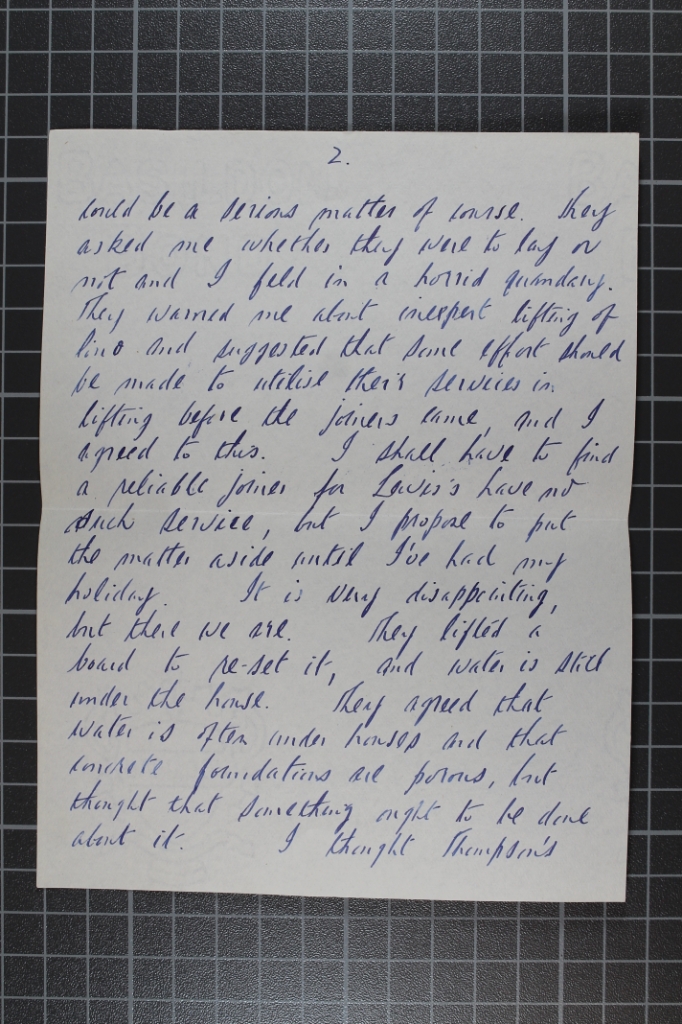 2.
could be a serious matter of course. They
asked me whether they were to lay or
not and I feld in a horrid quandary.
They warned me about inexpert lifting of
lino and suggested that some effort should
be made to utilise their services in
lifting before the joiners came, and I
agreed to this. I shall have to find
a reliable joiner for Lewis's have no
such service, but I propose to put
the matter aside until I've had my
holiday. It is very disappointing,
but there we are. They lifted a
board to re-set it, and water is still
under the house. They agreed that
water is often under houses and that
concrete foundations are porous, but
thought that something ought to be done
about it. I thought Thompson's